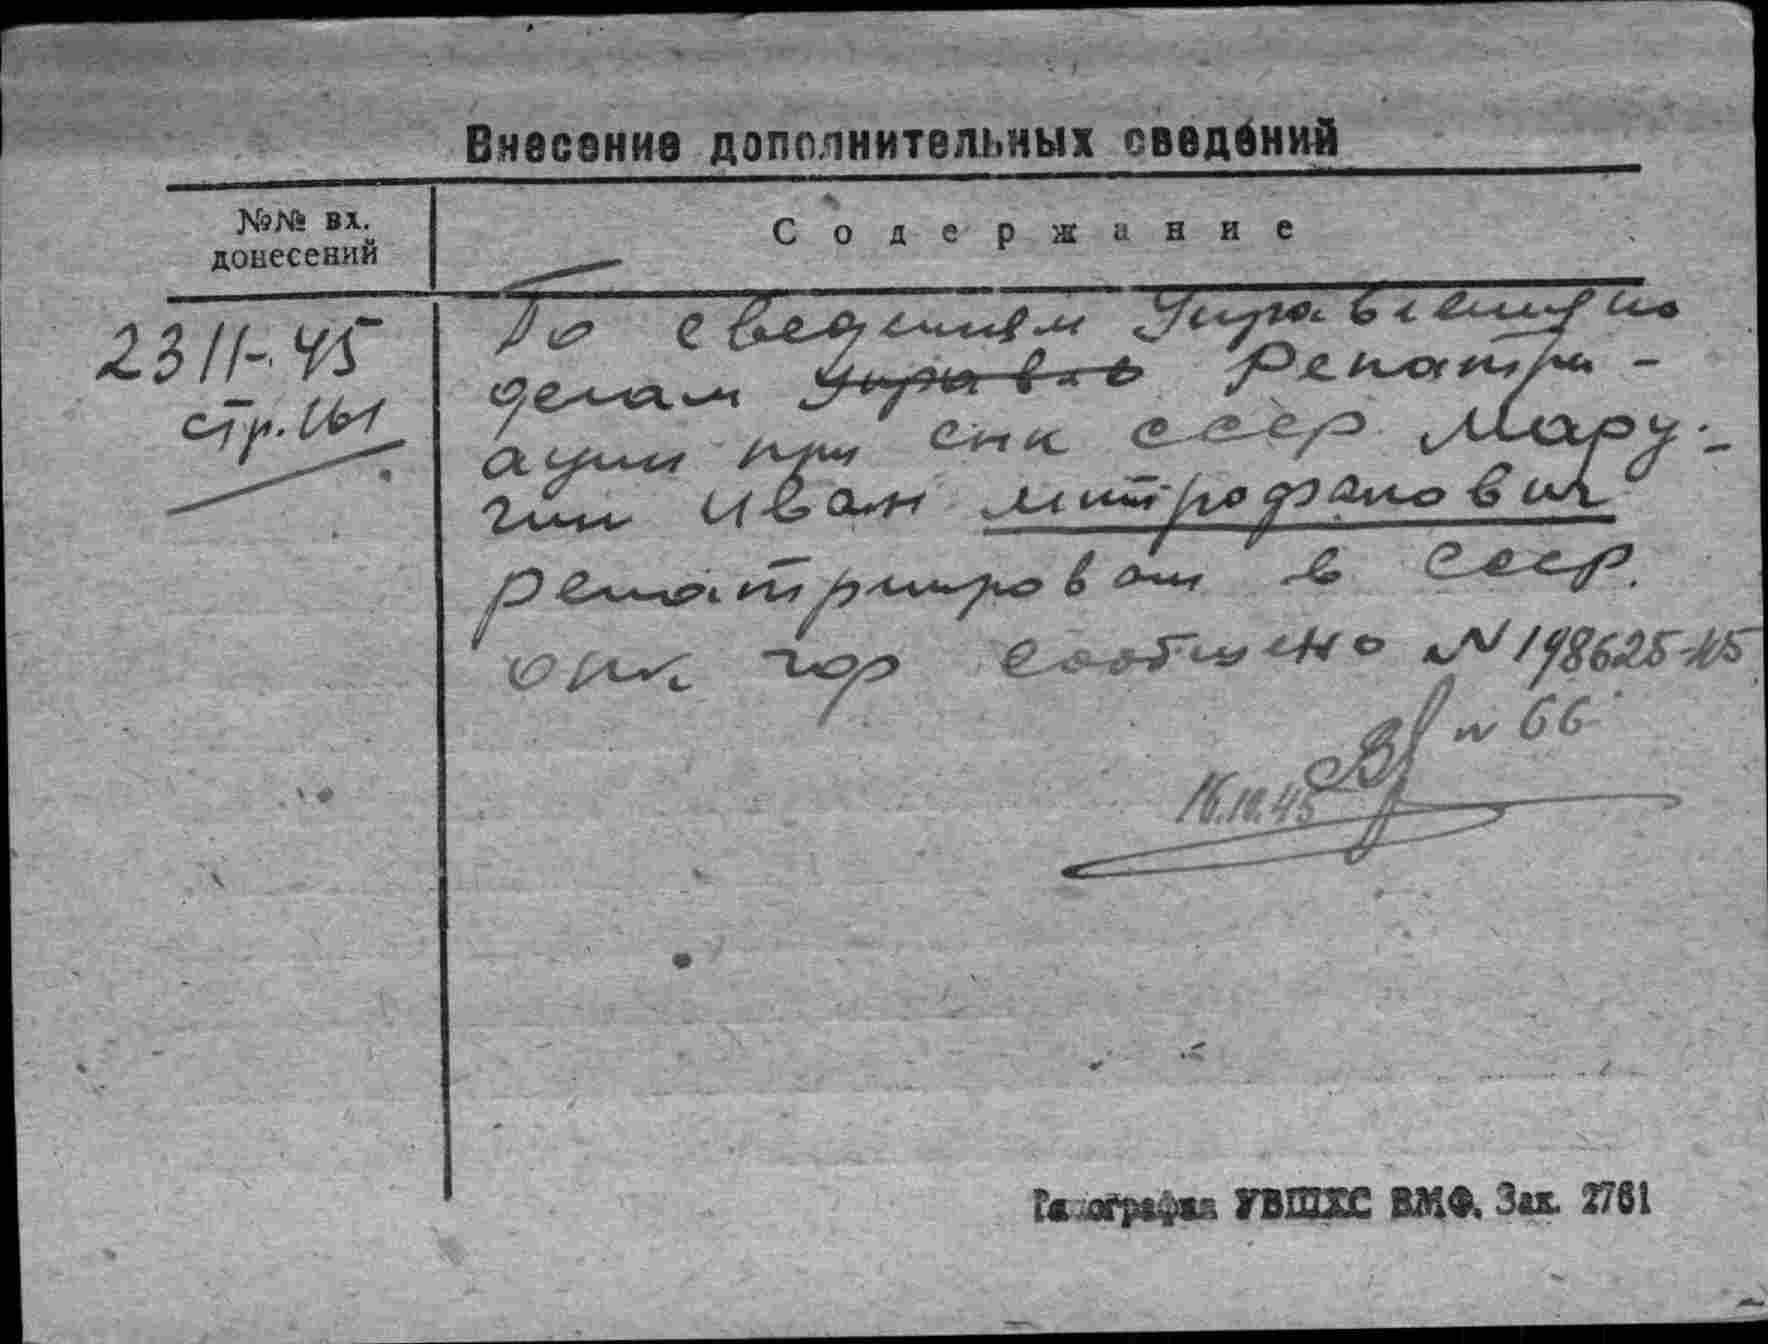 Внесение дополнительных сведений
№№ вх.
донесений
Содержание
2311-45
стр. 161
По сведениям Управления по
делам Управле Репатри-
ации при СНК СССР Мару-
гин Иван Митрофанович
репатриирован в СССР.
гор сообщено N 198625-45
N 66
16.10.45
Типография УВШХС ВМФ. Зак. 2761